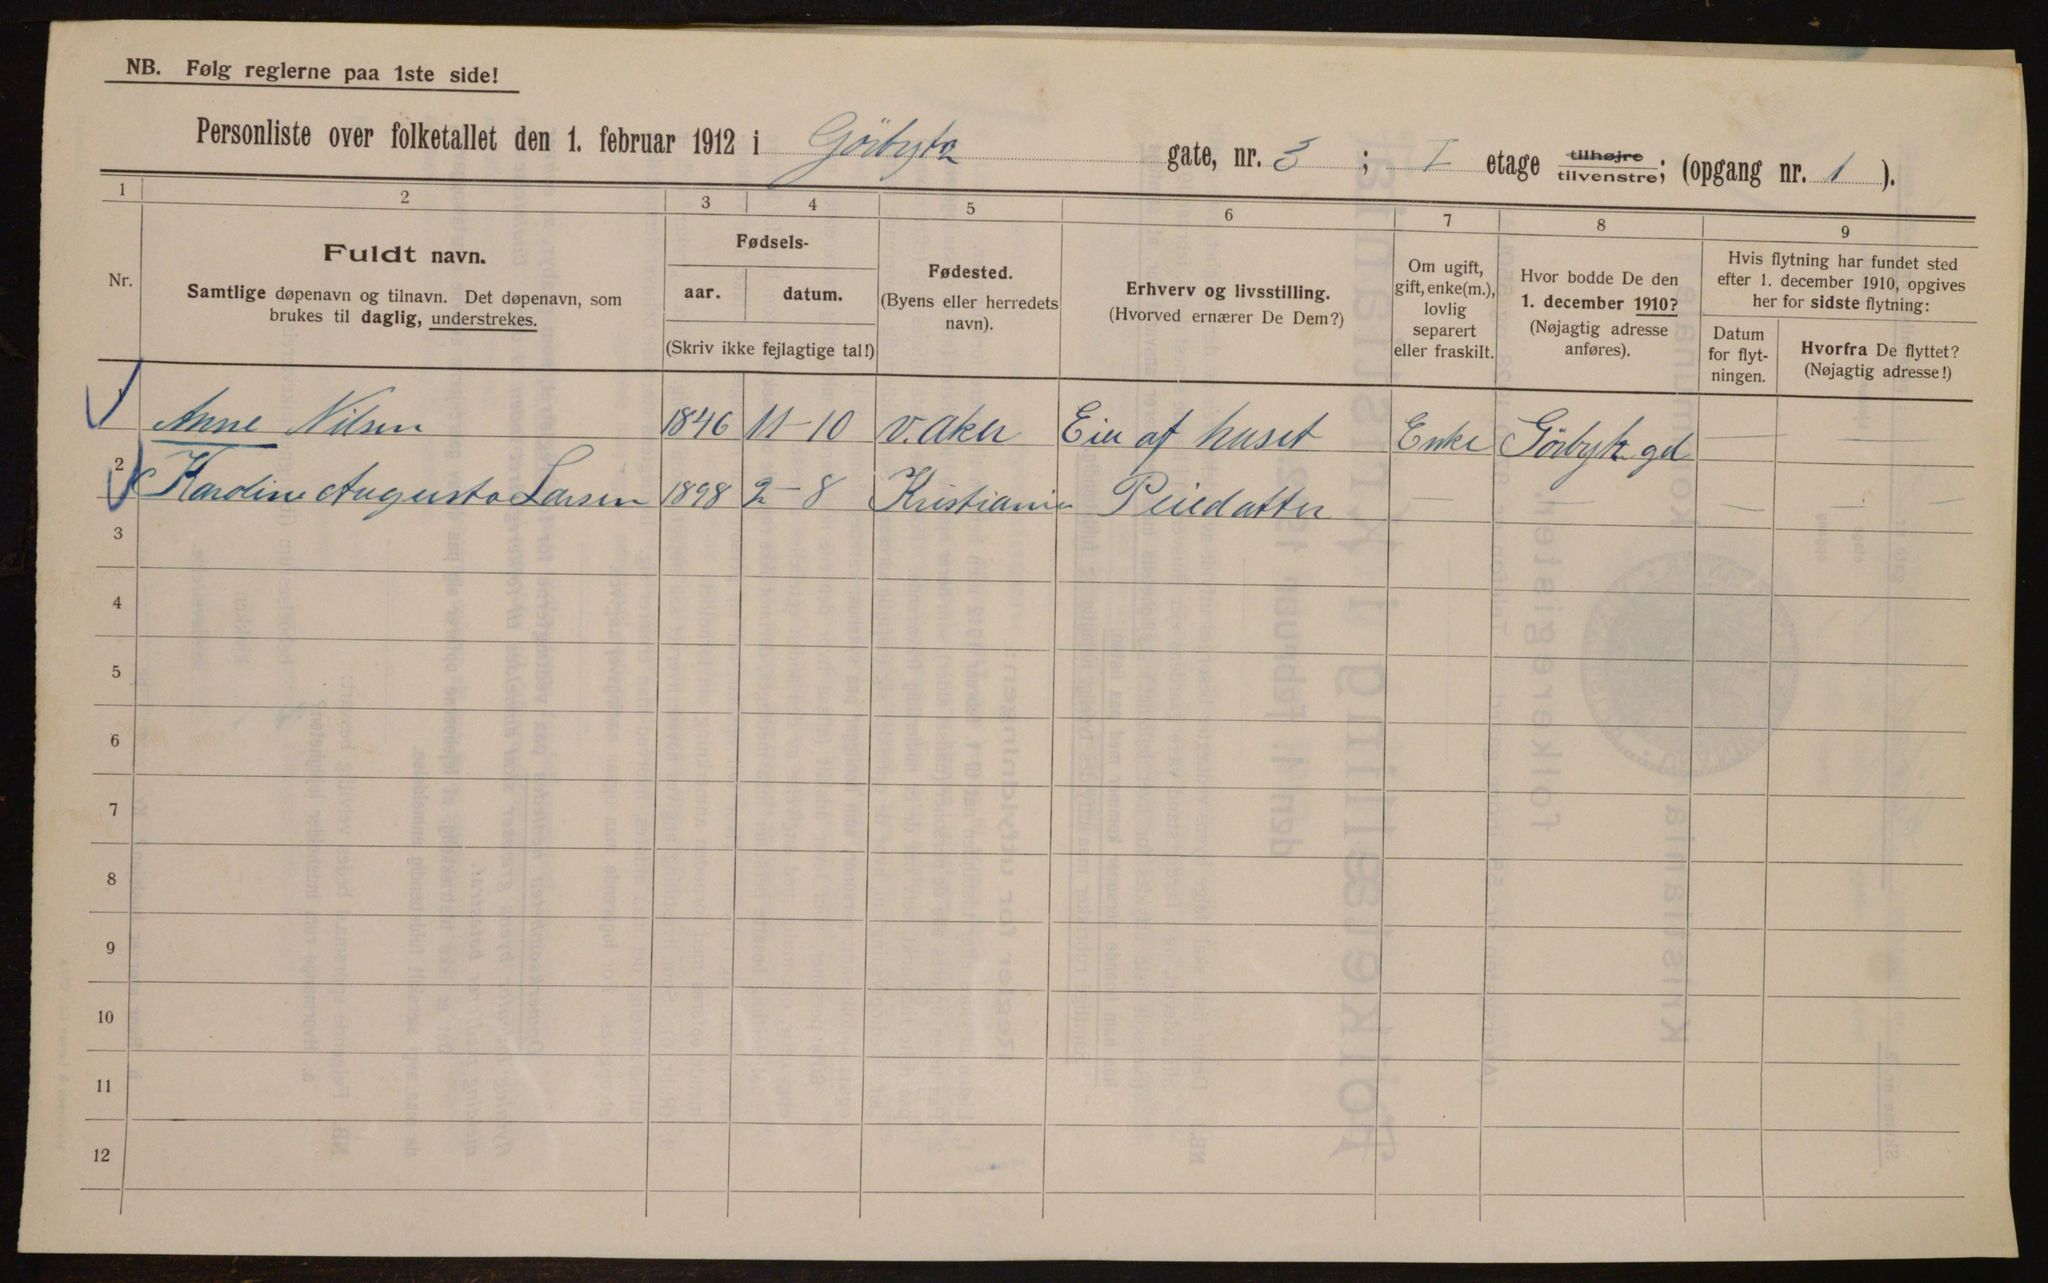 NB. Følg reglerne paa 1ste side!
Personliste over folketallet den 1. februar 1912 i Görbytz gate, nr. 3 ; I etage tilhøjre tilvenstre; (opgang nr. 1 ).
1 2 3 4 5 6 7 8 9
Nr.
Fuldt navn.
Samtlige døpenavn og tilnavn. Det døpenavn, som
brukes til daglig, understrekes.
Fødsels-
aar. datum.
(Skriv ikke fejlagtige tal!)
Fødested.
(Byens eller herredets
navn).
Erhverv og livsstilling.
(Hvorved ernærer De Dem?)
Om ugift,
gift, enke(m.),
lovlig
separert
eller fraskilt.
Hvor bodde De den
1. december 1910?
(Nøjagtig adresse
anføres).
Hvis flytning har fundet sted
efter 1. december 1910, opgives
her for sidste flytning:
Datum
for flyt-
ningen.
Hvorfra De flyttet?
(Nøjagtig adresse!)
1 Anne Nilsen 1846 11-10 V. Aker Eier af huset Enke Görbytz gd — —
2 Karoline Augusta Larsen 1898 2-8 Kristiania Pleiedatter — — — —
3
4
5
6
7
8
9
10
11
12